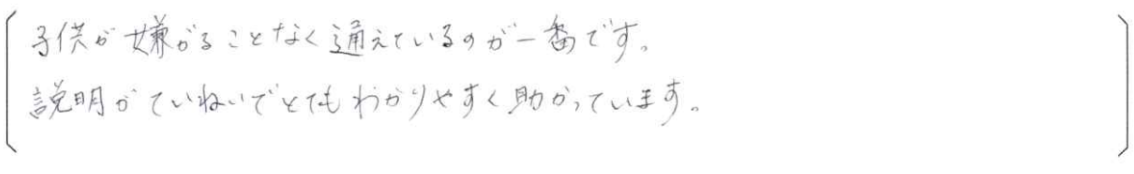 子供が嫌がることなく通えているのが一番です。
説明がていねいでとてもわかりやすく助かっています。